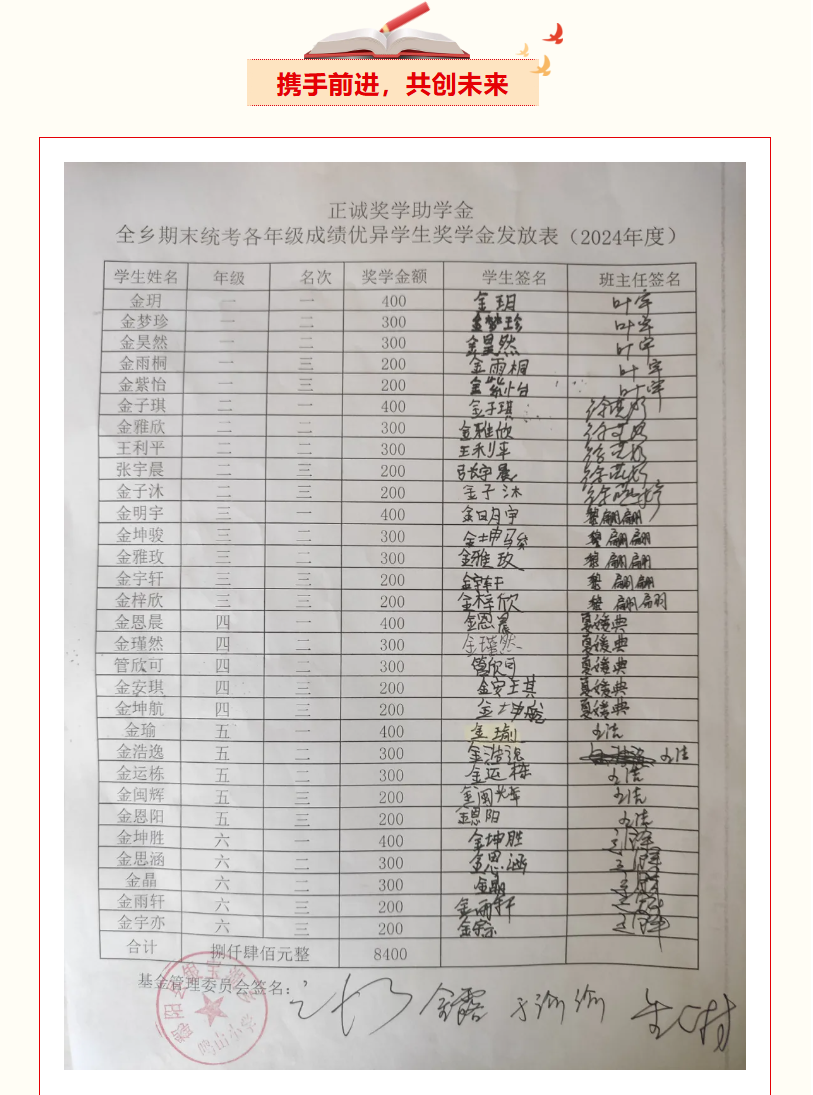 携手前进，共创未来
正诚奖学助学金
全乡期末统考各年级成绩优异学生奖学金发放表（2024年度）
学生姓名 年级 名次 奖学金额 学生签名 班主任签名
金玥 一 一 400 金玥 叶宇
金梦珍 一 二 300 金梦珍 叶宇
金昊然 一 二 300 金昊然 叶宇
金雨桐 一 三 200 金雨桐 叶宇
金紫怡 一 三 200 金紫怡 叶宇
金子琪 二 一 400 金子琪
金雅欣 二 二 300 金雅欣
王利平 二 二 300 王利平
张宇晨 二 三 200 张宇晨
金子沐 二 三 200 金子沐
金明宇 三 一 400 金明宇
金坤骏 三 二 300 金坤骏
金雅玫 三 二 300 金雅玫
金宇轩 三 三 200 金宇轩
金梓欣 三 三 200 金梓欣
金恩晨 四 一 400 金恩晨
金瑾然 四 二 300 金瑾然
管欣可 四 二 300 管欣可
金安琪 四 三 200 金安琪
金坤航 四 三 200 金坤航
金瑜 五 一 400 金瑜
金浩逸 五 二 300 金浩逸
金运栋 五 二 300 金运栋
金闽辉 五 三 200 金闽辉
金恩阳 五 三 200 金恩阳
金坤胜 六 一 400 金坤胜
金思涵 六 二 300 金思涵
金晶 六 二 300 金晶
金雨轩 六 三 200 金雨轩
金宇亦 六 三 200 金宇亦
合计 捌仟肆佰元整 8400
基金管理委员会签名：